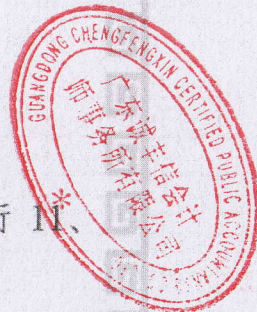 GUANGDONG CHENGFENGXIN CERTIFIED PUBLIC ACCOUNTANT
广东诚丰信会计
师事务所有限公司
行 11、